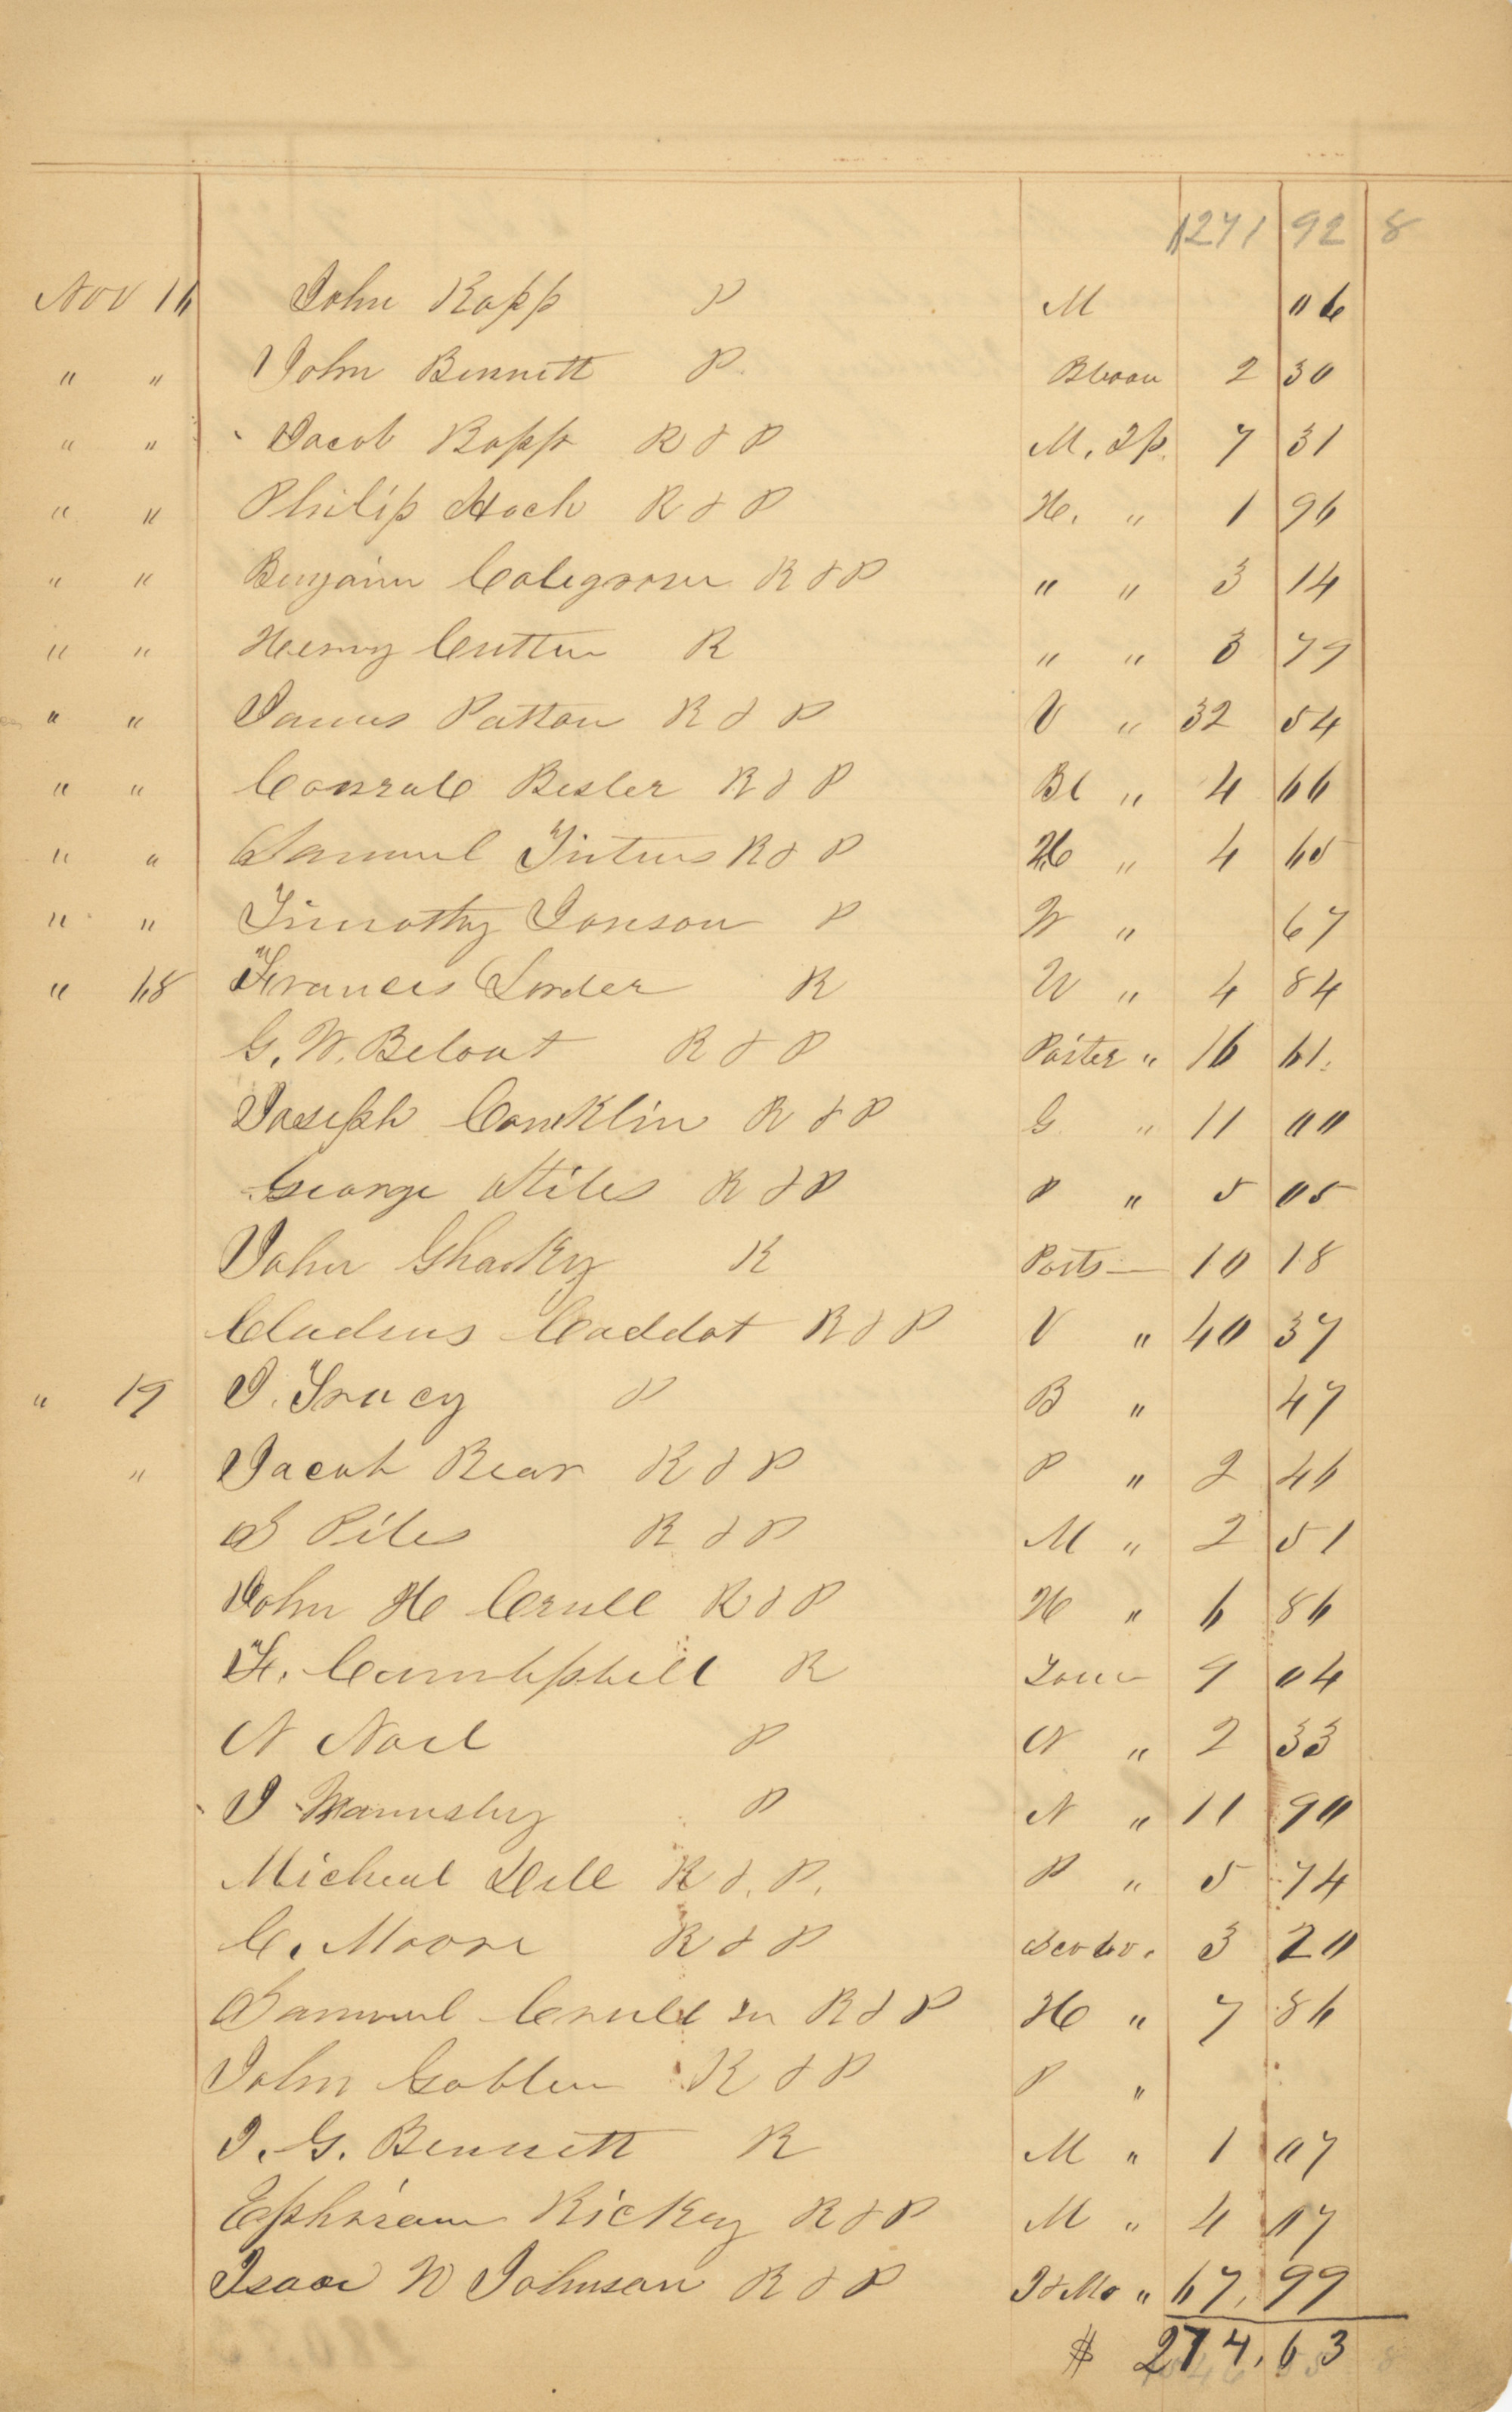 1271 92 8
Nov 16 John Rapp P M 06
" " John Bennett P. Bloom 2 30
" " Jacob Bapp R & P M. Tp. 7 31
" " Philip Hoch R & P H. " 1 96
" " Benjaim Colegrover R & P " " 3 14
" " Henry Cutter R " " 3 79
" " James Patton R & P V " 32 54
" " Conrale Besler R & P Bl " 4 66
" " Samuel Titus R & P H " 4 65
" " Timothy Jonson P W " 67
" 18 Francis Lorder R W " 4 84
G. W. Beloat R & P Porter " 16 61.
Joseph Conklin R & P G. " 11 00
George Stiles R & P P " 5 05
John Gharky R Ports — 10 18
Cladius Caddot R & P V " 40 37
" 19 J. Tracy P B " 47
" Jacob Bear R & P P " 2 46
S Piles R & P M " 2 51
John H Crull R & P H " 6 86
F. Cambpbell R 9 04
N Noel P N " 2 33
J Wamsley P N " 11 90
Micheal Dill R &. P. P " 5 74
C. Moore R & P Scioto. 3 20
Samuel Crull Sr R & P H " 7 86
John Goblen R & P P "
J. G. Bennett R M " 1 07
Ephriam Rickey R & P M " 4 17
Isaac W Johnson R & P J & Mo " 67, 99
$ 274. 63